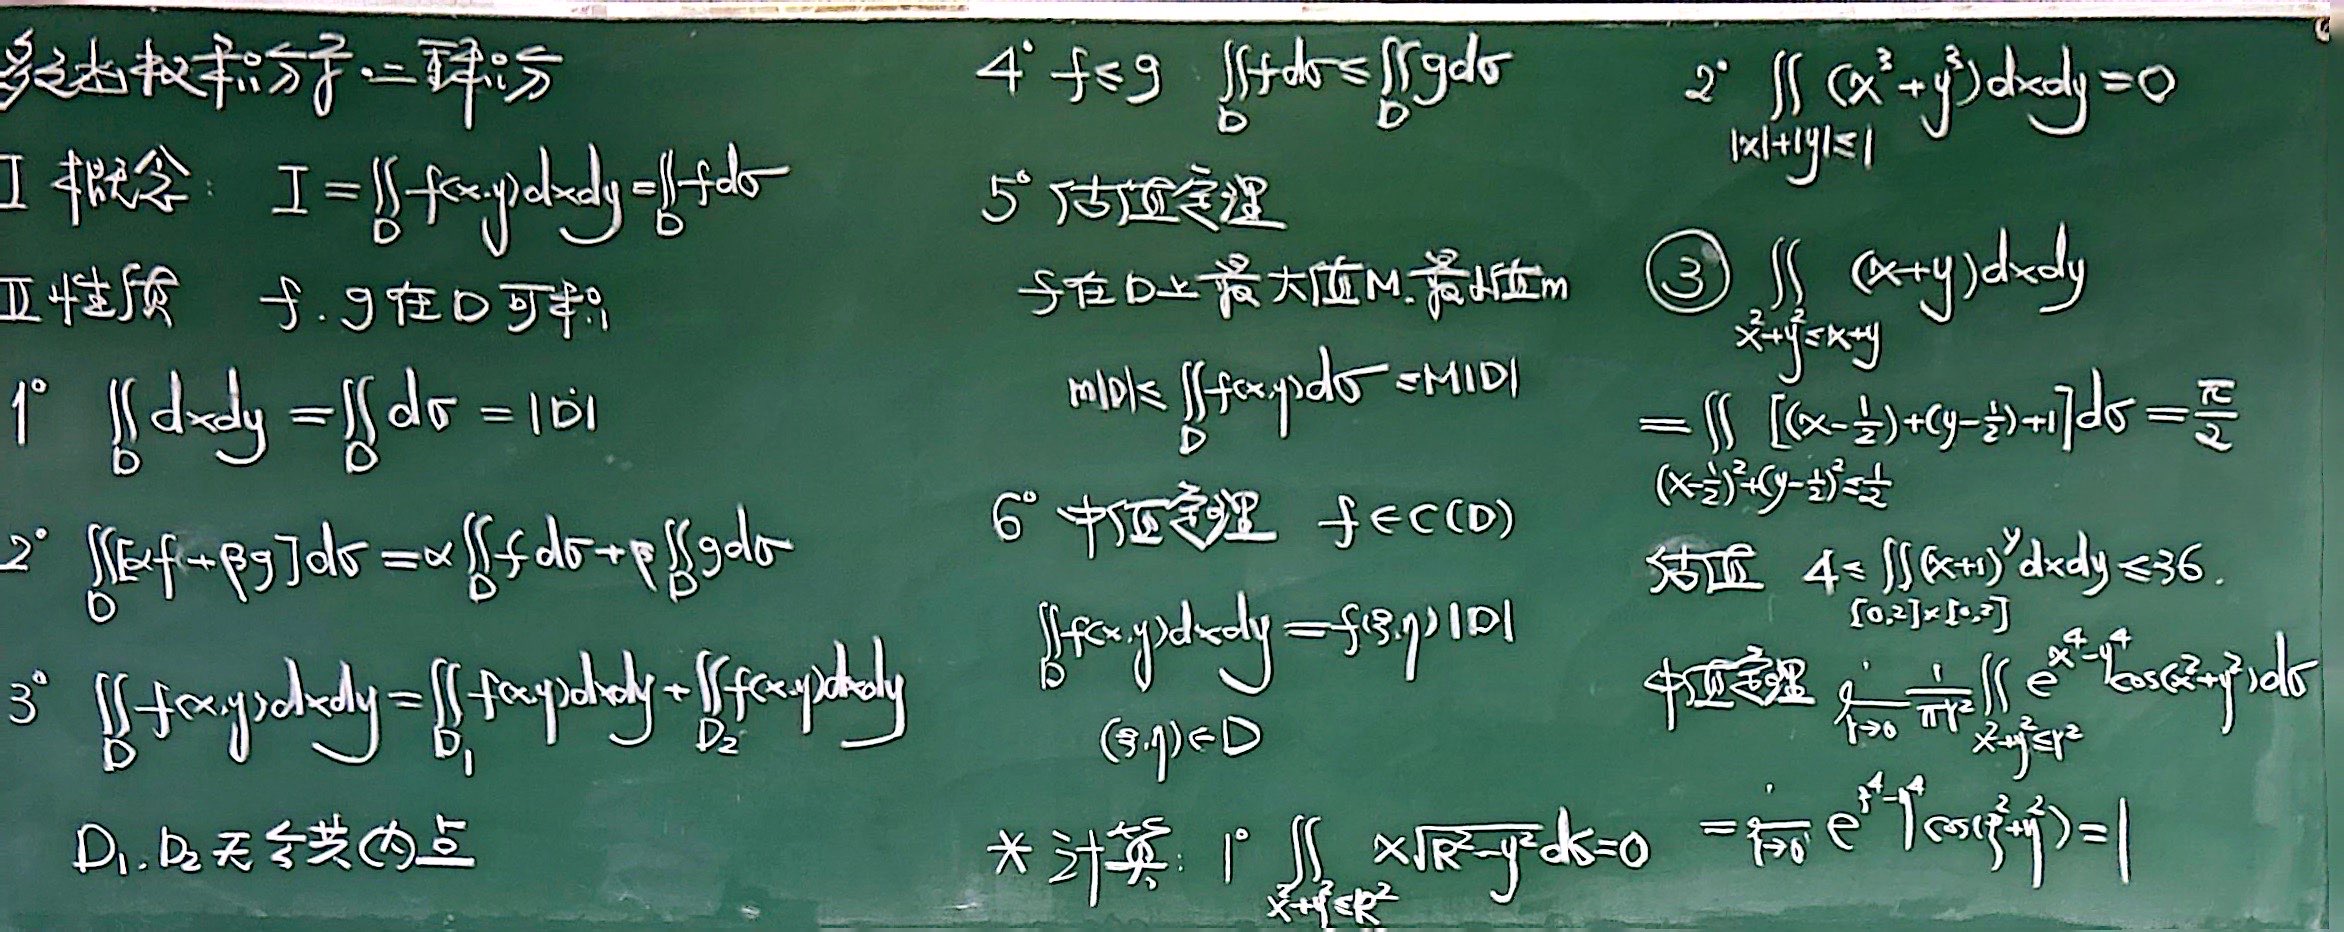 多元函数积分学·二重积分
I 概念: I=∬_D f(x,y)dxdy=∬_D fdσ
II 性质 f.g在D可积
1° ∬_D dxdy=∬_D dσ=|D|
2° ∬_D [αf+βg]dσ=α∬_D fdσ+β∬_D gdσ
3° ∬_D f(x,y)dxdy=∬_{D₁} f(x,y)dxdy+∬_{D₂} f(x,y)dxdy
D₁.D₂无公共内点
4° f≤g ∬_D fdσ≤∬_D gdσ
5° 估值定理
f在D上最大值M.最小值m
m|D|≤∬_D f(x,y)dσ≤M|D|
6° 中值定理 f∈C(D)
∬_D f(x,y)dxdy=f(ξ,η)|D|
(ξ,η)∈D
* 计算: 1° ∬_{x²+y²≤R²} x√(R²-y²)dσ=0
2° ∬_{|x|+|y|≤1} (x³+y³)dxdy=0
③ ∬_{x²+y²≤x+y} (x+y)dxdy
=∬_{(x-1/2)²+(y-1/2)²≤1/2} [(x-1/2)+(y-1/2)+1]dσ=π/2
估值 4≤∬_{[0,2]×[0,2]} (x+1)^y dxdy≤36.
中值定理 lim_{r→0} 1/(πr²) ∬_{x²+y²≤r²} e^{x⁴-y⁴}cos(x²+y²)dσ
=lim_{r→0} e^{ξ⁴-η⁴}cos(ξ²+η²)=1